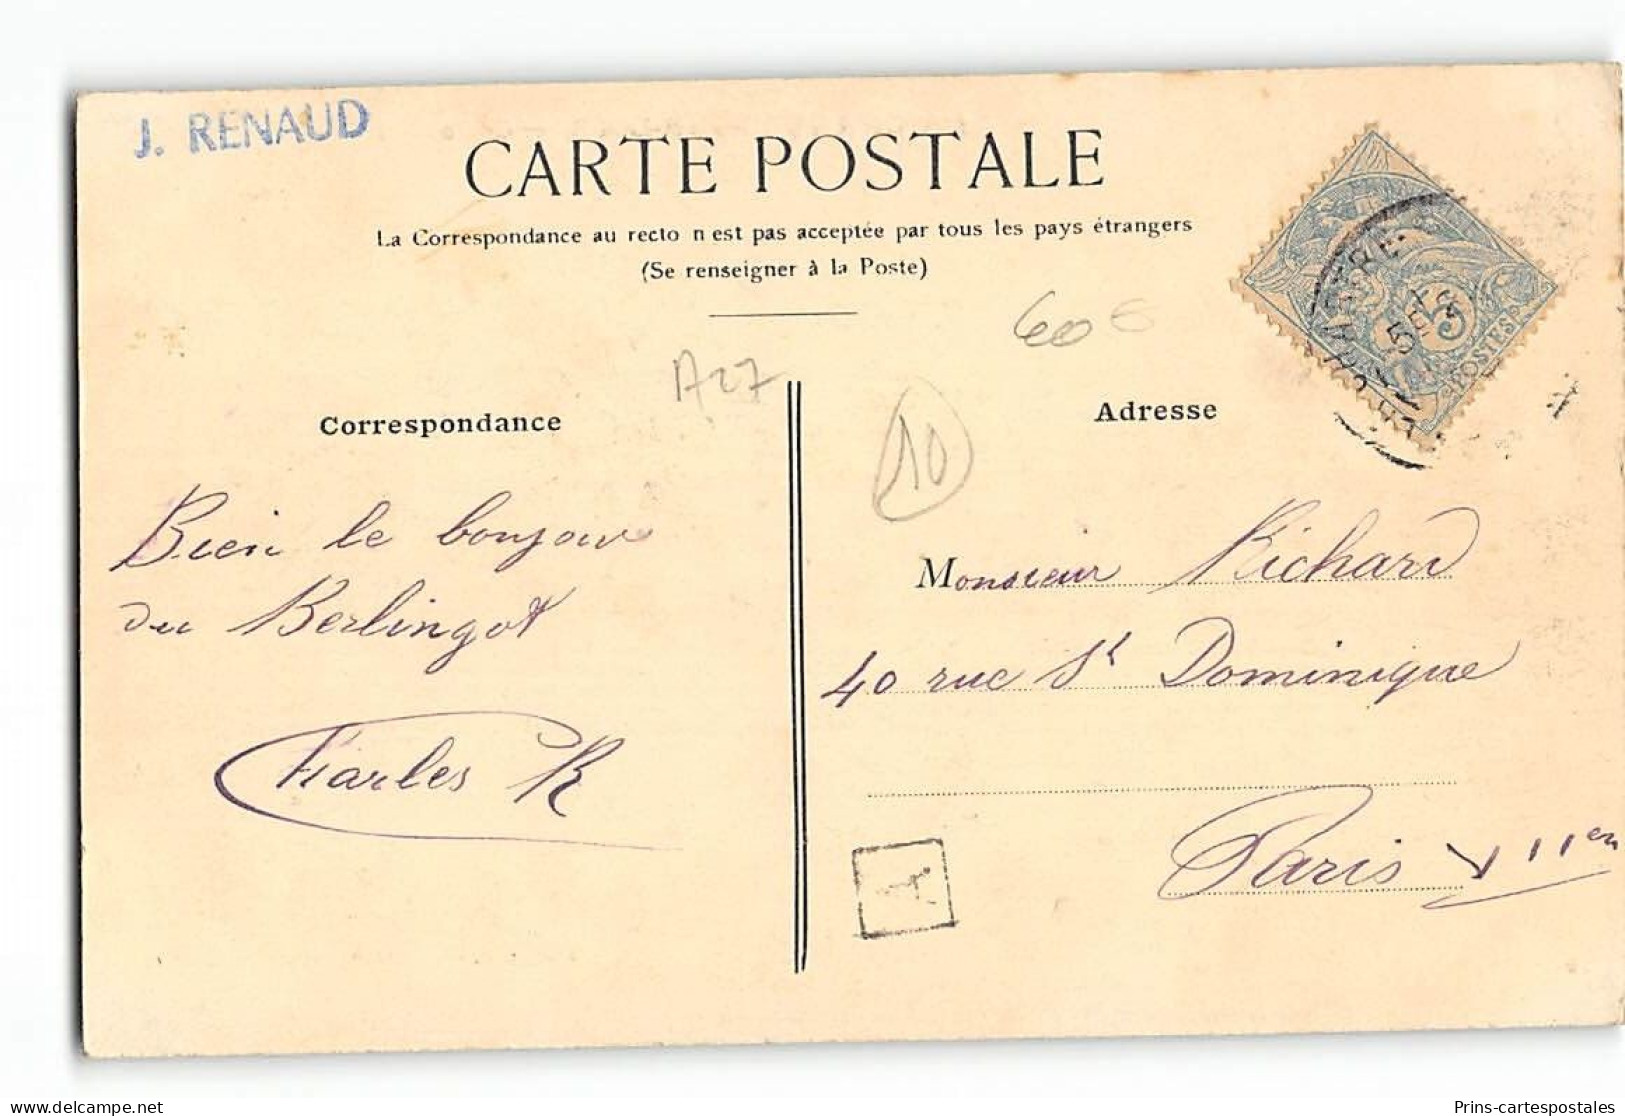 J. RENAUD
CARTE POSTALE
La Correspondance au recto n est pas acceptée par tous les pays étrangers
(Se renseigner à la Poste)
60 €
A27
Correspondance
Adresse
10
5
POSTES
Bien le bonjour
du Berlingot
Charles R
Monsieur Richard
40 rue St Dominique
Paris VIIen
A
delcampe.net
Prins-cartespostales